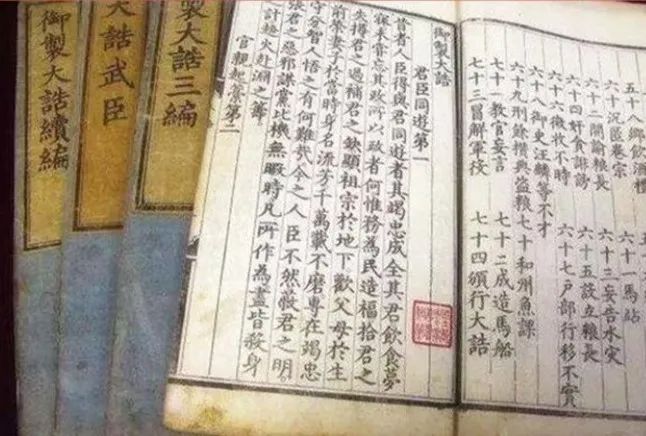 五十八鄉飲酒禮
六十沉匿卷宗 六十一馬站
六十二閑論粮長 六十三妄告水灾
六十四奸貪誹謗 六十五設立粮長
六十六徵收不時 六十七戶部行移不實
六十八御史汪麟等不才
六十九刑餘攢典盜粮 七十和州魚課
七十一教官妄言 七十二成造馬船
七十三冒解軍役 七十四頒行大誥
御製大誥
君臣同遊第一
昔者人臣得與君同遊者其竭忠成全其君飲食夢
寐未嘗忘其政所以政者何惟務為民造福拾君之
失撙君之過補君之缺顯祖宗於地下歡父母於生
前榮妻子於當時身名流芳千萬載不磨專在竭忠
守分智人悟之有何難哉今之人臣不然蔽君之明
張君之惡邪謀黨比機無暇時凡所作為盡皆殺身
計趨火赴淵之筭
官親起藁第二
製大誥三編
大誥武臣
御製大誥續編